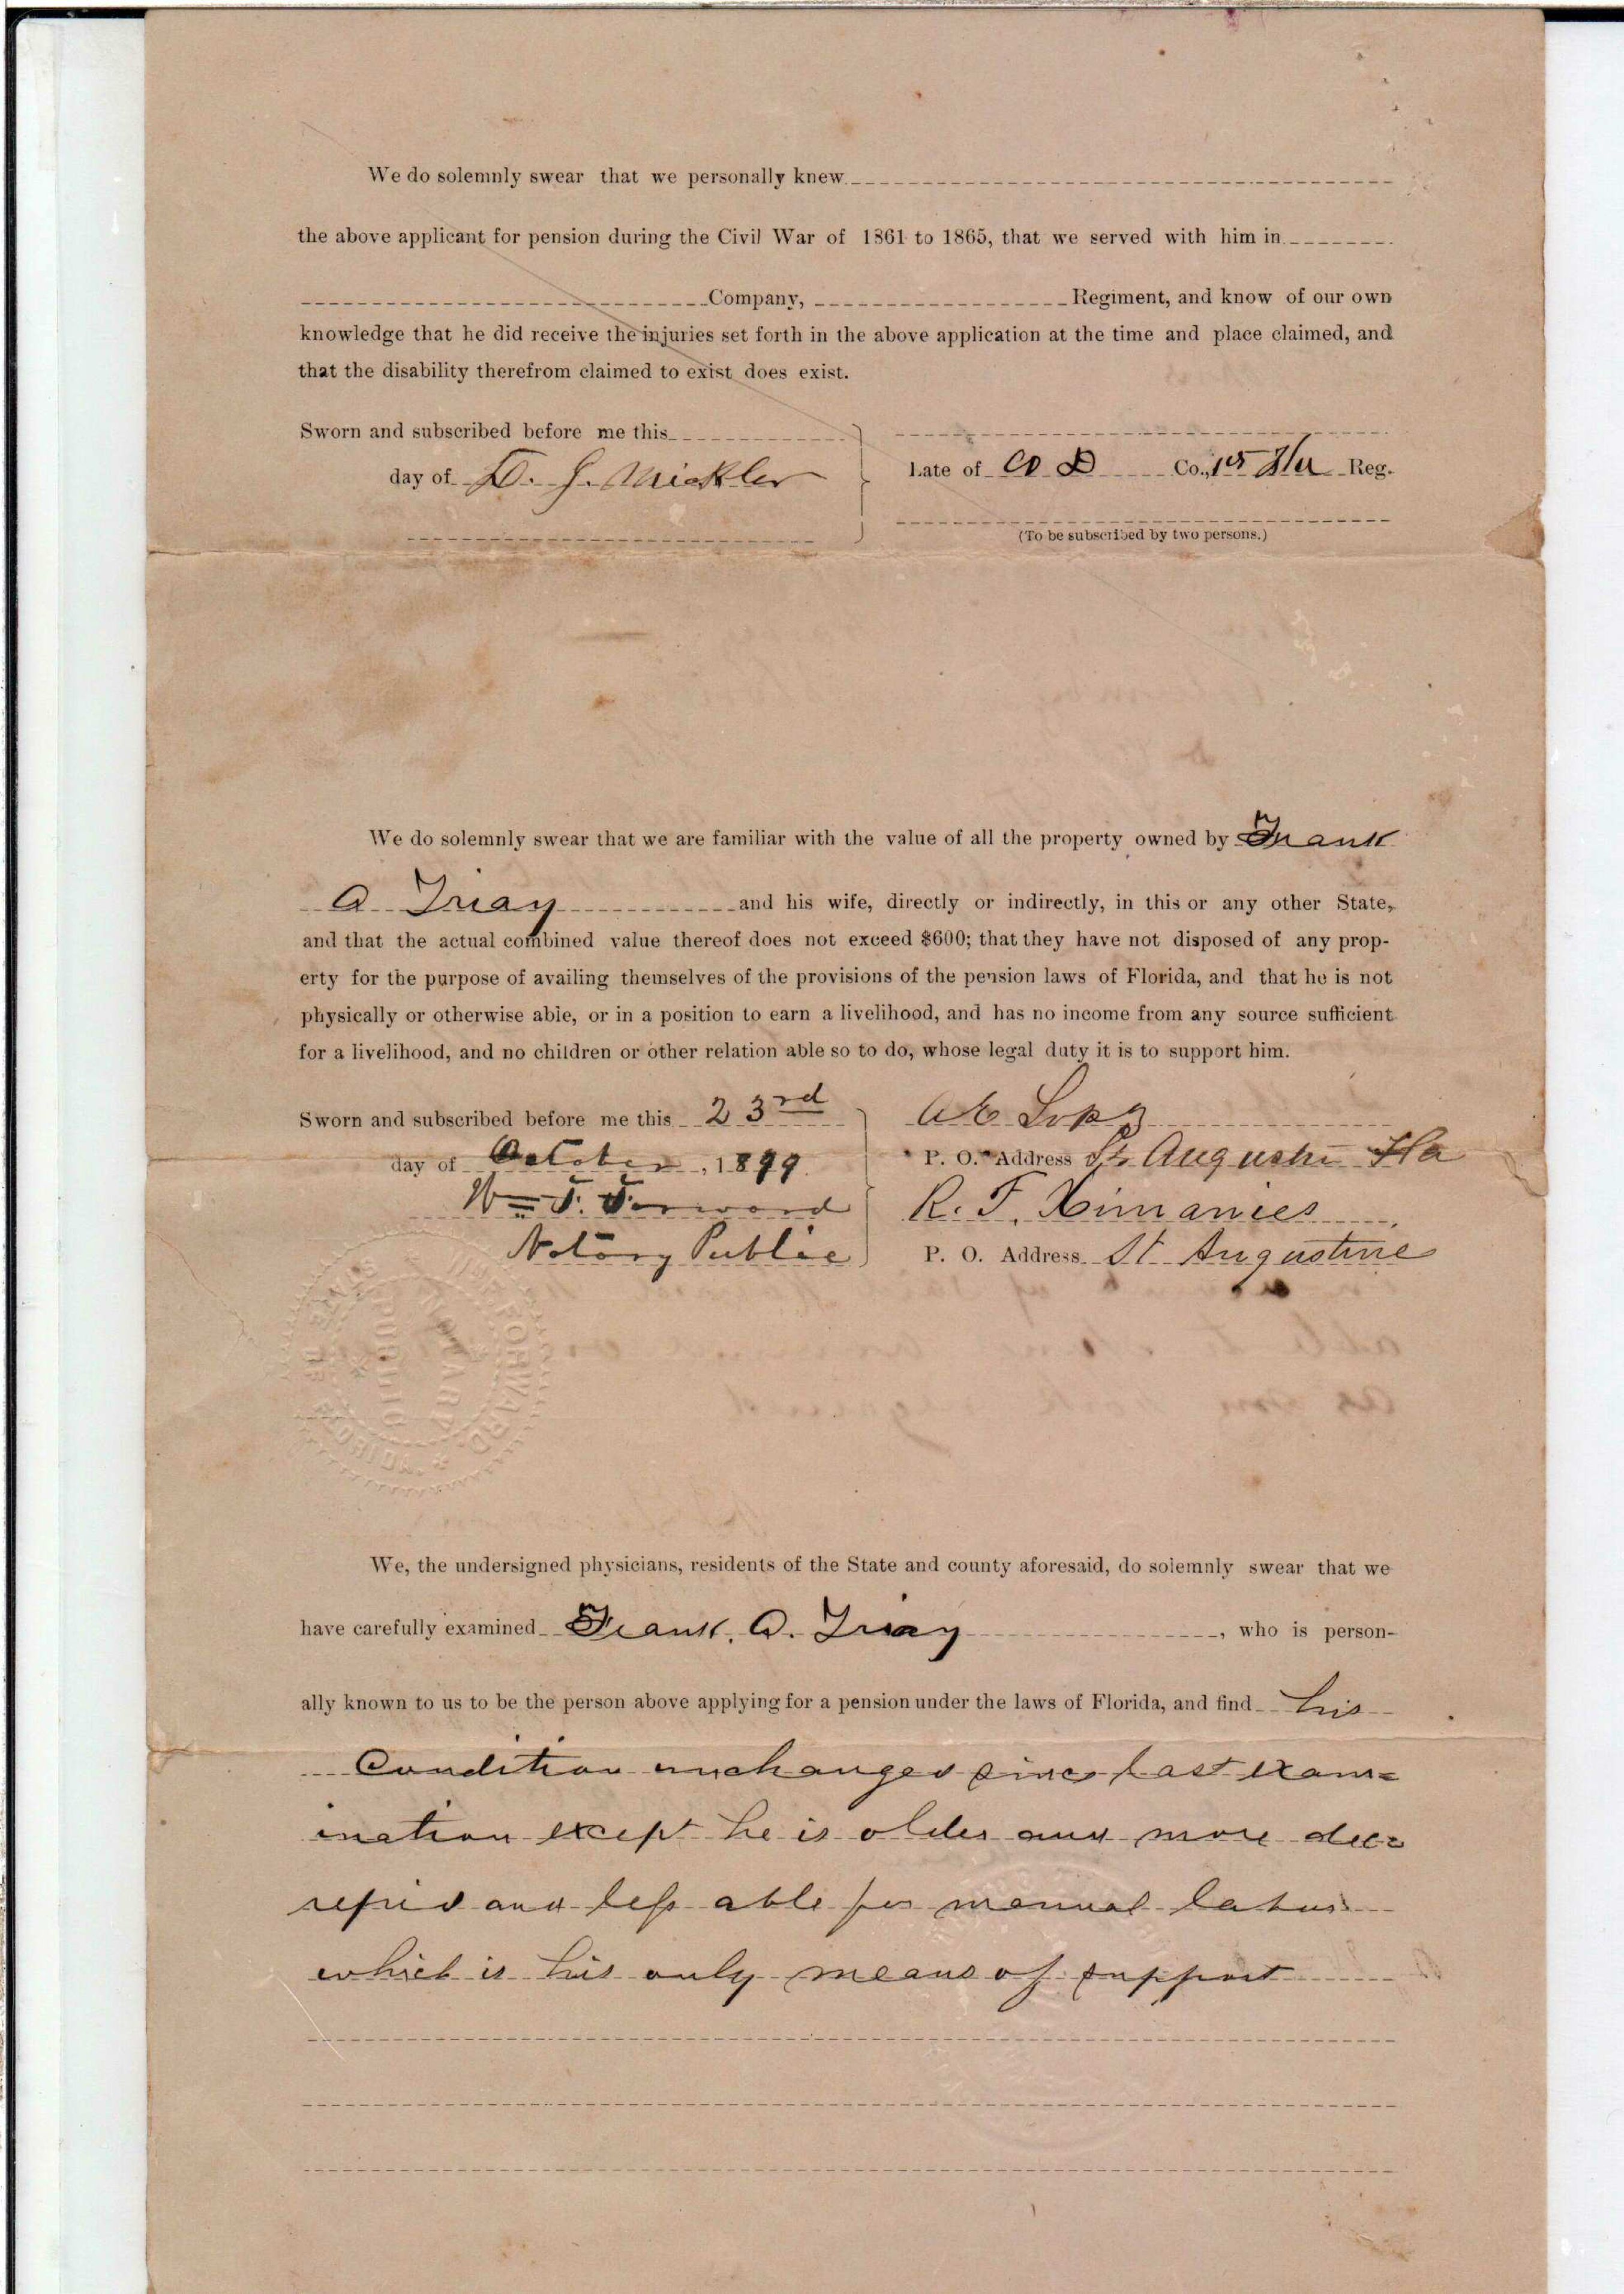 We do solemnly swear that we personally knew
the above applicant for pension during the Civil War of 1861 to 1865, that we served with him in
Company, Regiment, and know of our own
knowledge that he did receive the injuries set forth in the above application at the time and place claimed, and
that the disability therefrom claimed to exist does exist.
Sworn and subscribed before me this
day of D. J. Mickler
Late of Co D Co., 1st Fla Reg.
(To be subscribed by two persons.)
We do solemnly swear that we are familiar with the value of all the property owned by Frank
A Triay and his wife, directly or indirectly, in this or any other State,
and that the actual combined value thereof does not exceed $600; that they have not disposed of any prop-
erty for the purpose of availing themselves of the provisions of the pension laws of Florida, and that he is not
physically or otherwise able, or in a position to earn a livelihood, and has no income from any source sufficient
for a livelihood, and no children or other relation able so to do, whose legal duty it is to support him.
Sworn and subscribed before me this 23rd
day of October, 1899
Wm F. Forward
Notary Public
A E Lopez
P. O. Address St Augustine Fla
R. F. Ximanies
P. O. Address St Augustine
NOTARY PUBLIC
FLORIDA.
We, the undersigned physicians, residents of the State and county aforesaid, do solemnly swear that we
have carefully examined Frank. A. Triay, who is person-
ally known to us to be the person above applying for a pension under the laws of Florida, and find his
Condition unchanged since last exam=
ination except he is older and more dec=
repid and less able for manual labor
which is his only means of support